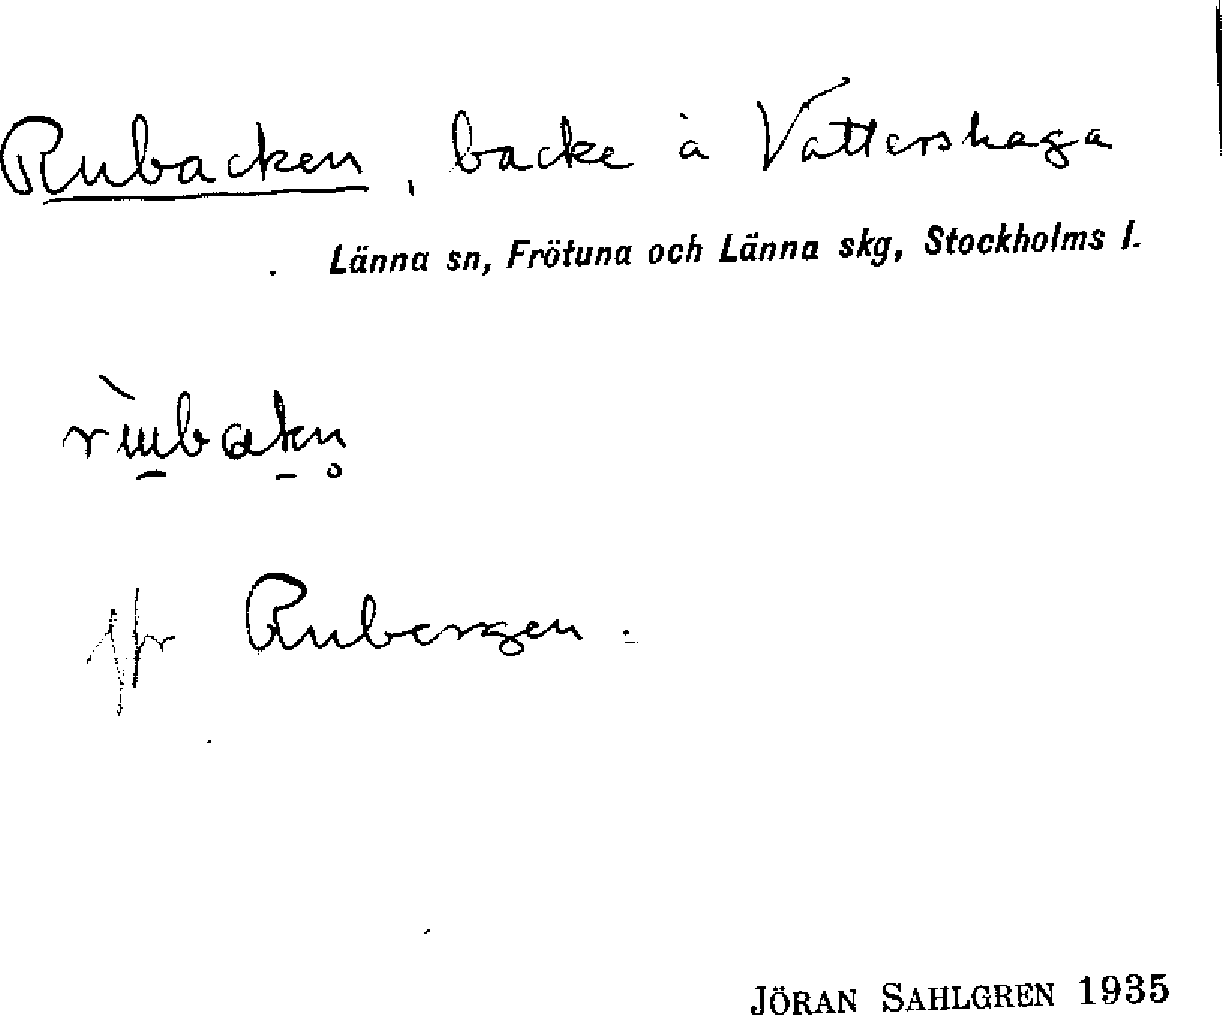 Rubacken, backe å Vättershaga
Länna sn, Frötuna och Länna skg, Stockholms l.
Jfr Rubergen.
JÖRAN SAHLGREN 1935